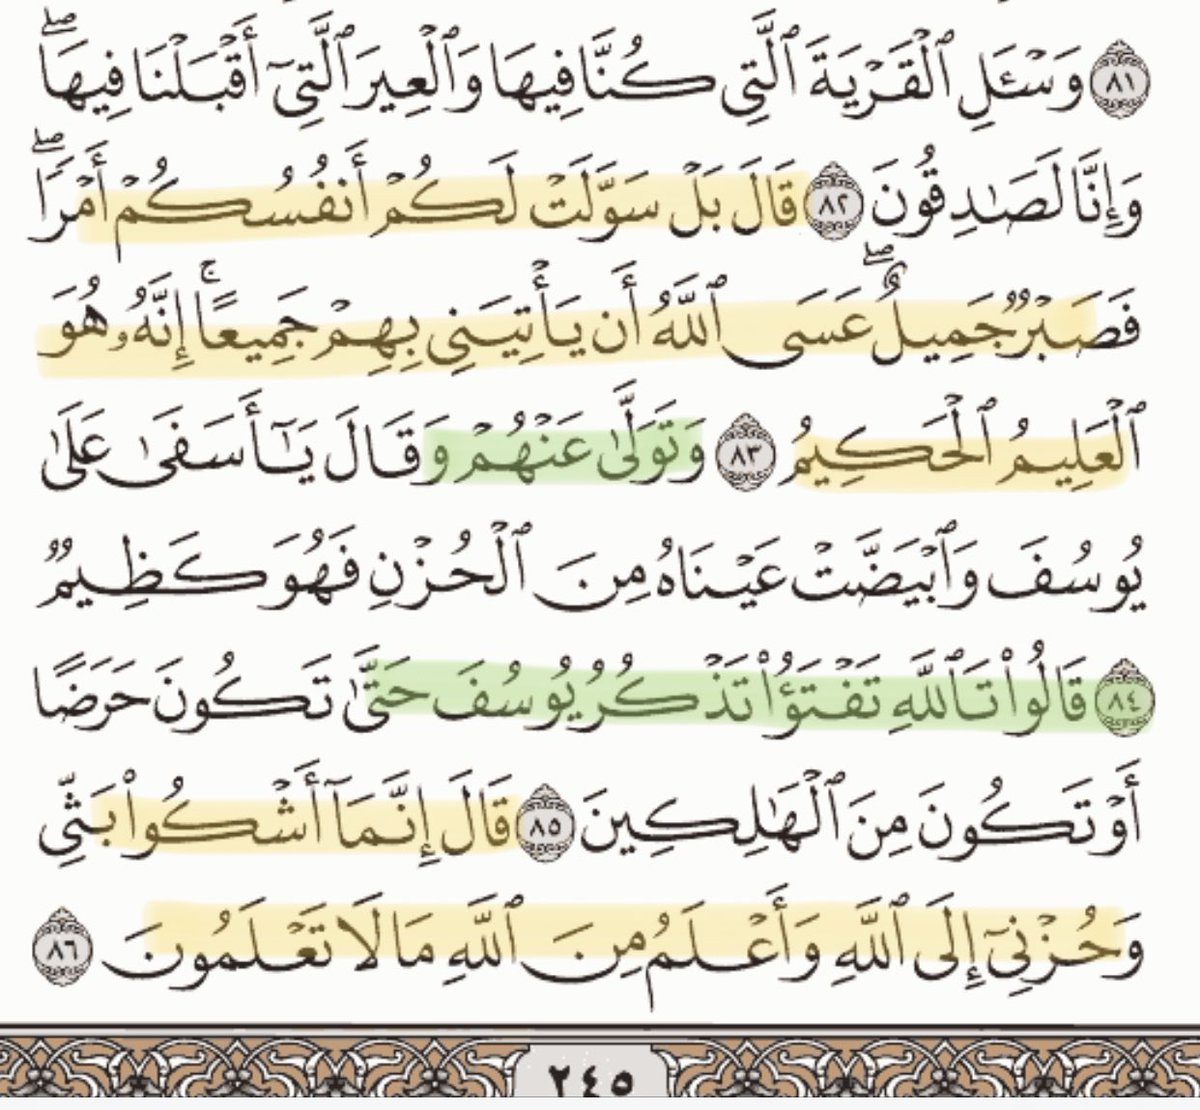 ٨١ وَسْـَٔلِ ٱلْقَرْيَةَ ٱلَّتِي كُنَّا فِيهَا وَٱلْعِيرَ ٱلَّتِيٓ أَقْبَلْنَا فِيهَاۖ
وَإِنَّا لَصَٰدِقُونَ ٨٢ قَالَ بَلْ سَوَّلَتْ لَكُمْ أَنفُسُكُمْ أَمْرٗاۖ
فَصَبْرٞ جَمِيلٌۖ عَسَى ٱللَّهُ أَن يَأْتِيَنِي بِهِمْ جَمِيعًاۚ إِنَّهُۥ هُوَ
ٱلْعَلِيمُ ٱلْحَكِيمُ ٨٣ وَتَوَلَّىٰ عَنْهُمْ وَقَالَ يَٰٓأَسَفَىٰ عَلَىٰ
يُوسُفَ وَٱبْيَضَّتْ عَيْنَاهُ مِنَ ٱلْحُزْنِ فَهُوَ كَظِيمٞ
٨٤ قَالُوا۟ تَٱللَّهِ تَفْتَؤُا۟ تَذْكُرُ يُوسُفَ حَتَّىٰ تَكُونَ حَرَضًا
أَوْ تَكُونَ مِنَ ٱلْهَٰلِكِينَ ٨٥ قَالَ إِنَّمَآ أَشْكُوا۟ بَثِّي
وَحُزْنِيٓ إِلَى ٱللَّهِ وَأَعْلَمُ مِنَ ٱللَّهِ مَا لَا تَعْلَمُونَ ٨٦
٢٤٥